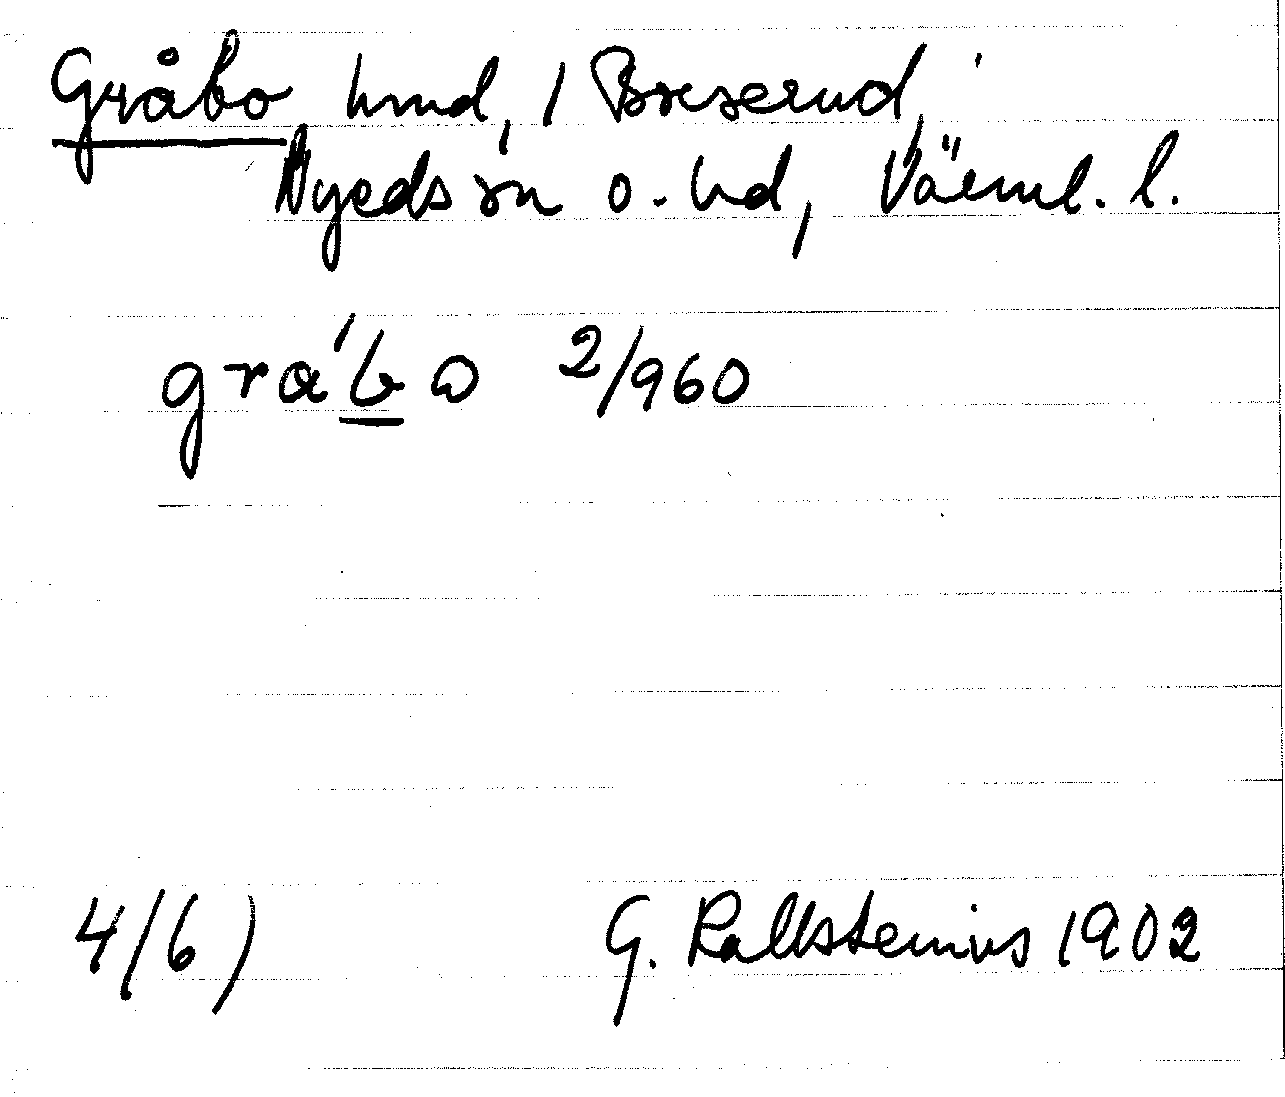 Gråbo hmd, 1 Breserud,
Nyeds sn o. hd, Värml. l.
grá'bω 2/960
4/6) G. Kallstenius 1902